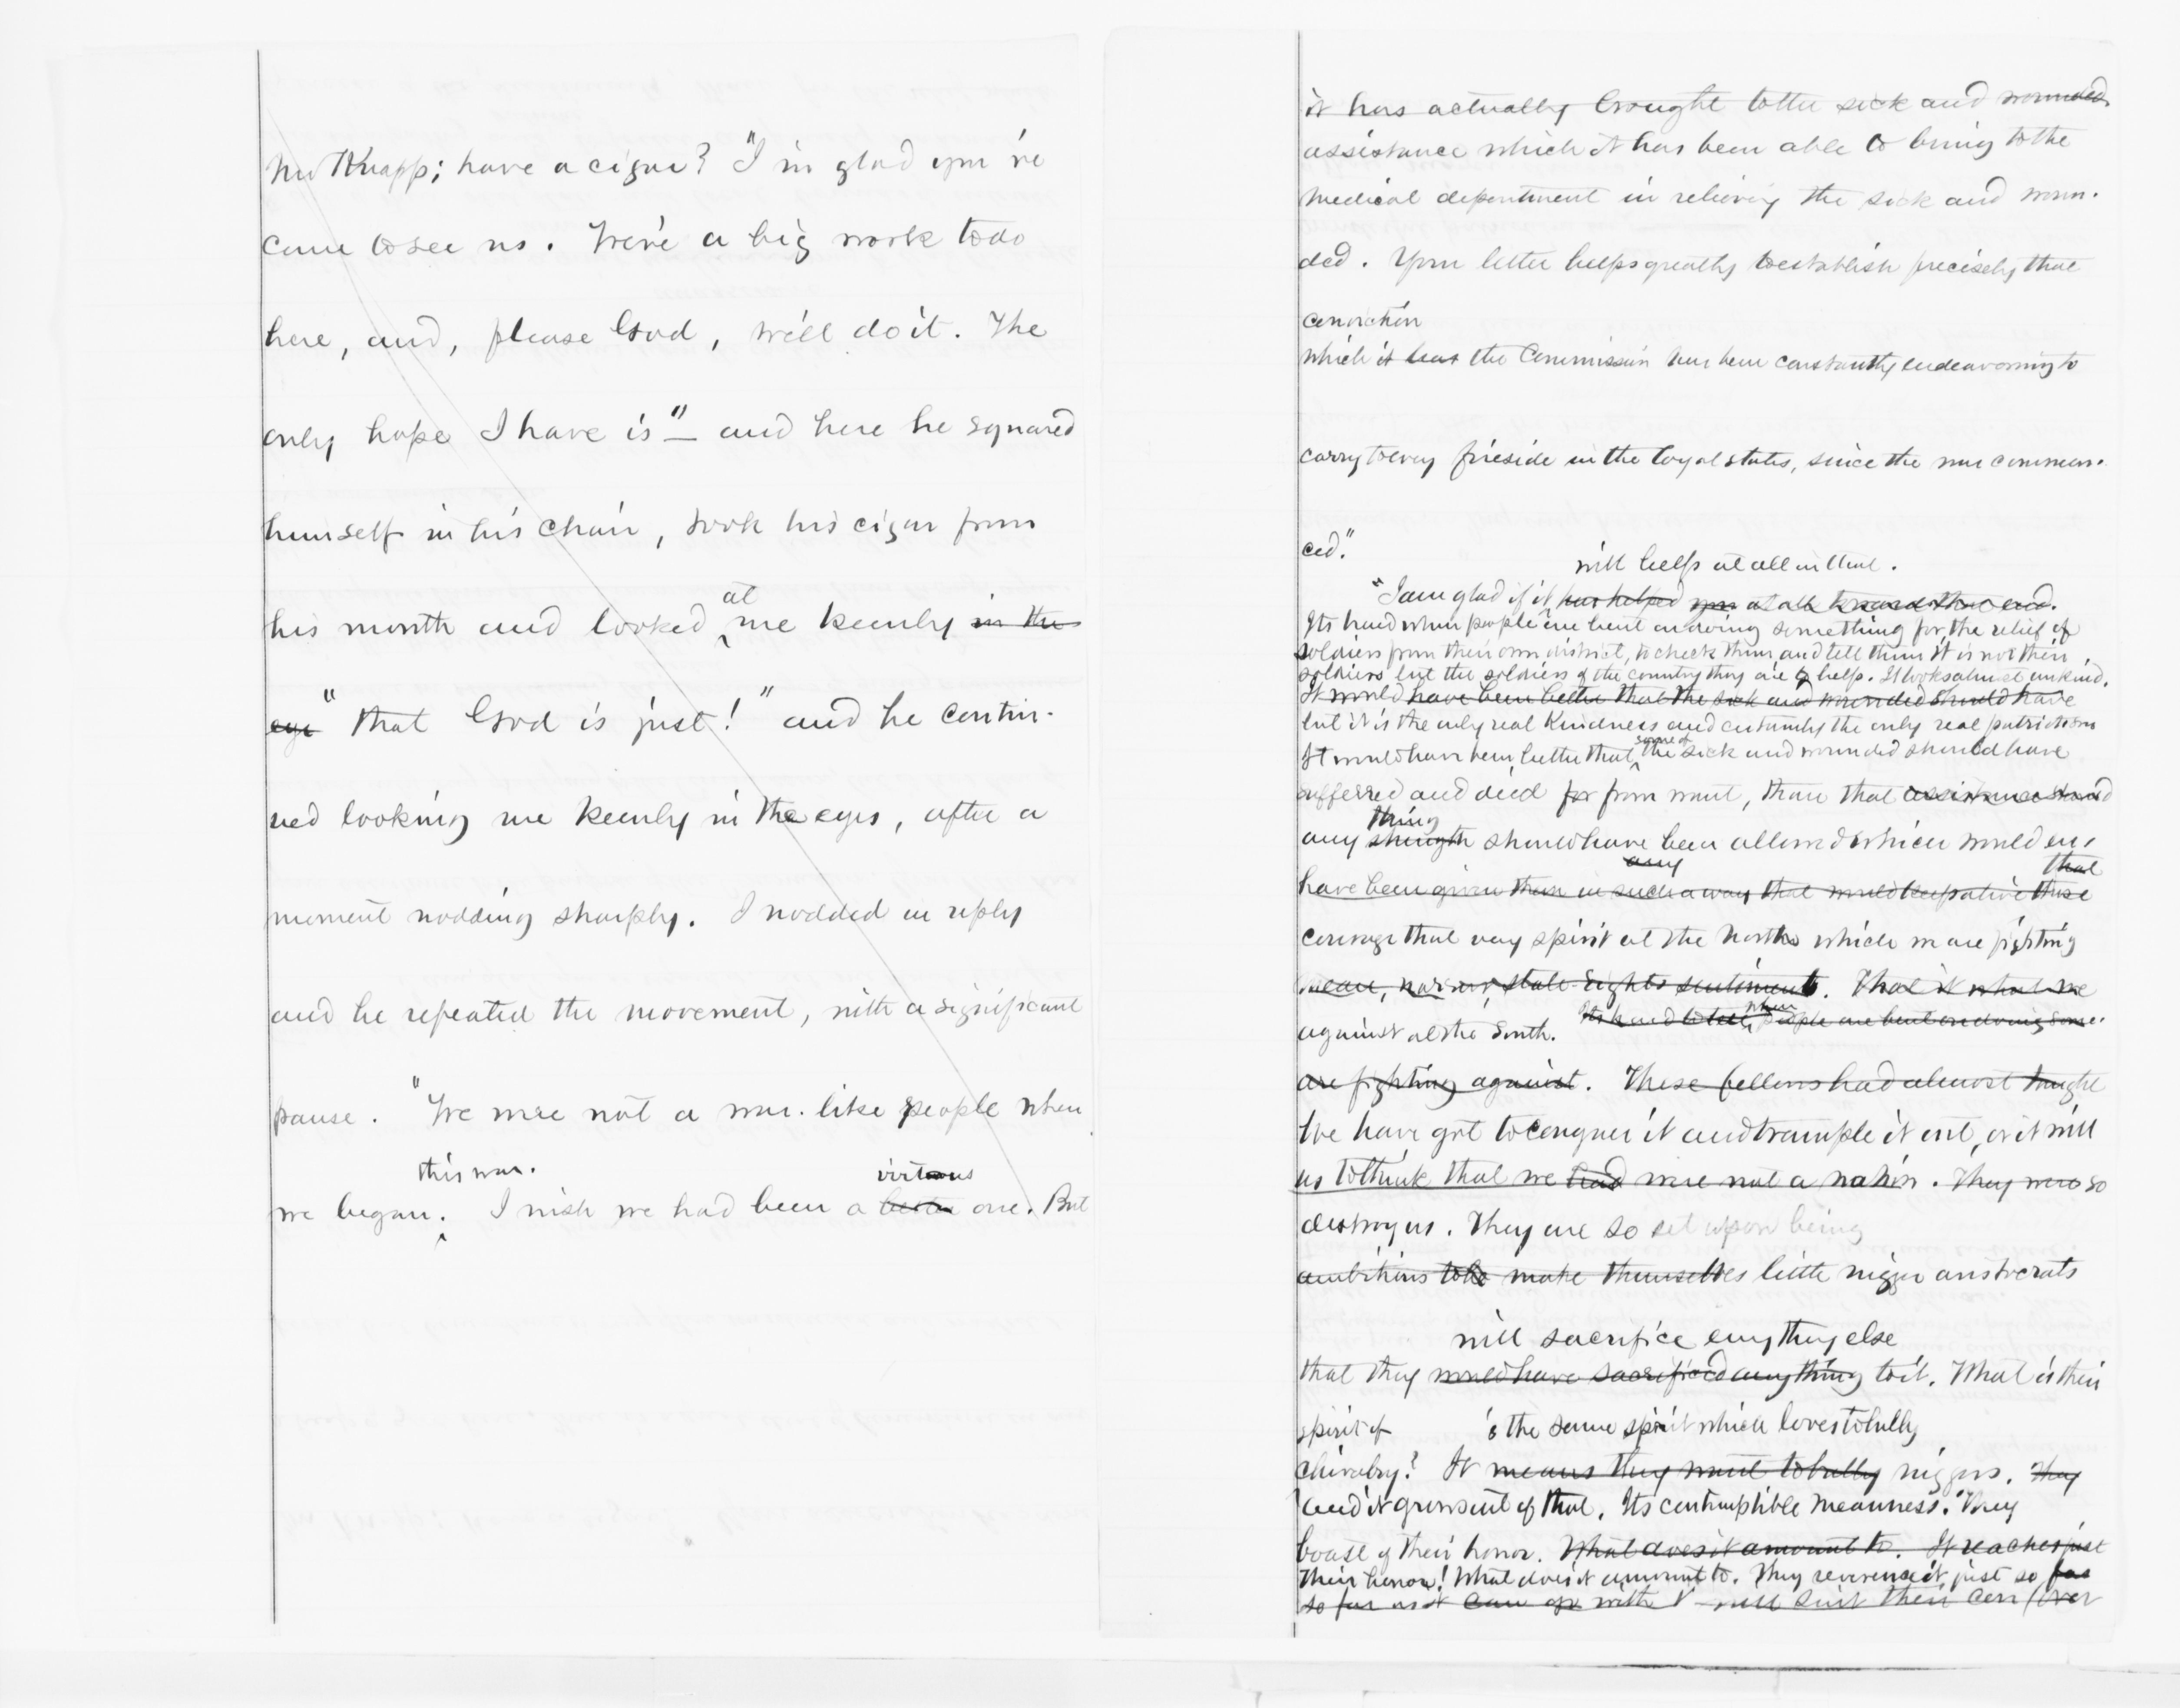 Mr Knapp; have a cigar? "I'm glad you've
come to see us. We've a big work to do
here, and, please God, we'll do it. The
only hope I have is" — and here he squared
himself in his chair, took his cigar from
at
his mouth and looked me keenly in the
eye "that God is just!" and he contin-
ued looking me keenly in the eyes, after a
moment nodding sharply. I nodded in reply
and he repeated the movement, with a significant
pause. "We were not a war-like people when
this war. virtuous
we began. I wish we had been a better one. But
it has actually brought to the sick and wounded
assistance which it has been able to bring to the
medical department in relieving the sick and woun-
ded. Your letter helps greatly to establish precisely that
conviction
which it has the Commission has been constantly endeavoring to
carry to every fireside in the loyal states, since the war commen-
ced."
will help at all in that.
"I am glad if it has helped you at all toward that end.
Its hard when people are bent on doing something for the relief of
soldiers from their own district, to check them and tell them it is not their
soldiers but the soldiers of the country they are to help. It looks almost unkind.
It would have been better that the sick and wounded should have
but it is the only real kindness and certainly the only real patriotism
some of
It would have been better that the sick and wounded should have
suffered and died for from want, than that assistance should
thing
any strength should have been allowed which would en-
any that
have been given them in such a way that would keep alive those
courage that very spirit at the North which we are fighting
mean, narrow, state-rights sentiments. That is what we
when
against at the South. Its hard to tell, people are bent on doing some-
are fighting against. These fellows had almost taught
We have got to conquer it and trample it out, or it will
us to think that we had were not a nation. They were so
destroy us. They are so set upon being
ambitious to be make themselves little nigger aristocrats
will sacrifice everything else
that they would have sacrificed anything to it. What is their
spirit of is the same spirit which loves to bully
chivalry? It means they want to bully niggers. They
and it grows out of that. Its contemptible meanness. They
boast of their honor. What does it amount to. It reaches just
Their honor! What does it amount to. They reverence it just so far
so far as it can go with it will suit their